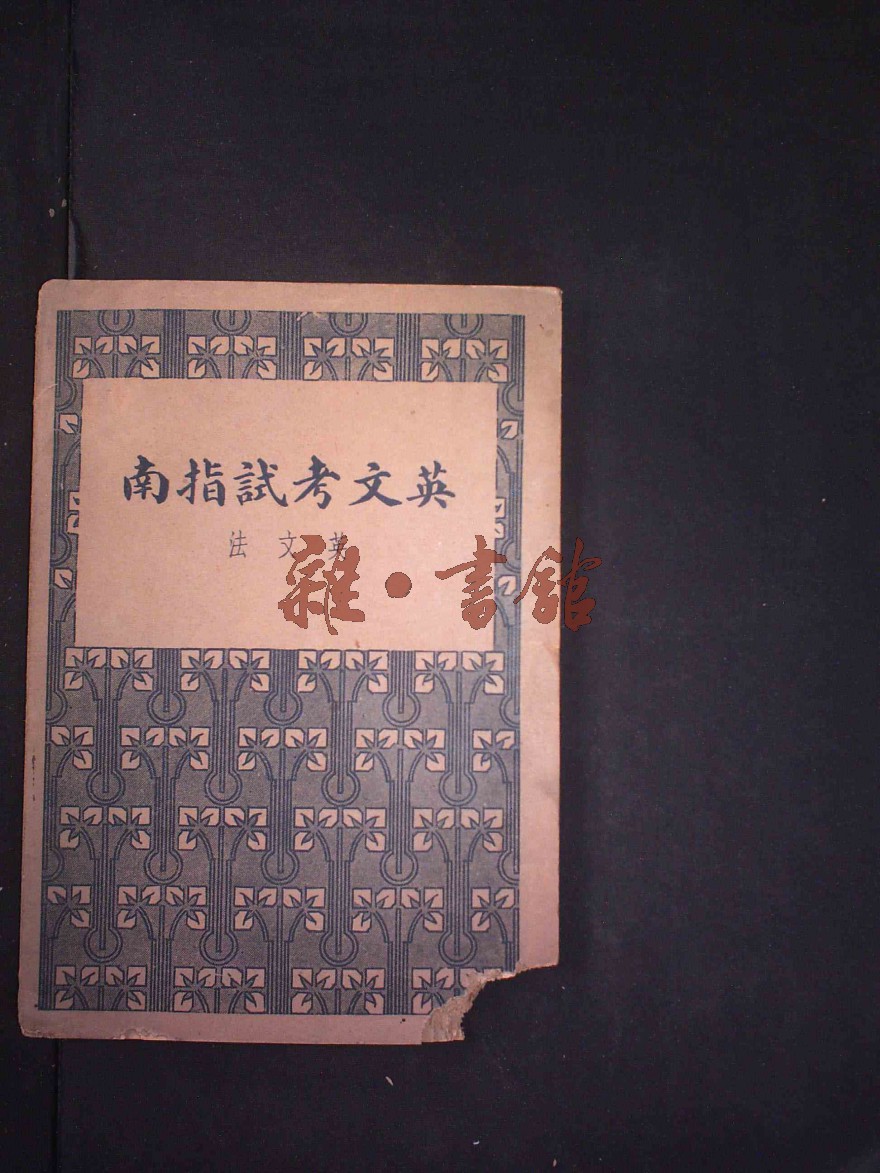 英文考試指南
英文法
雜·書館